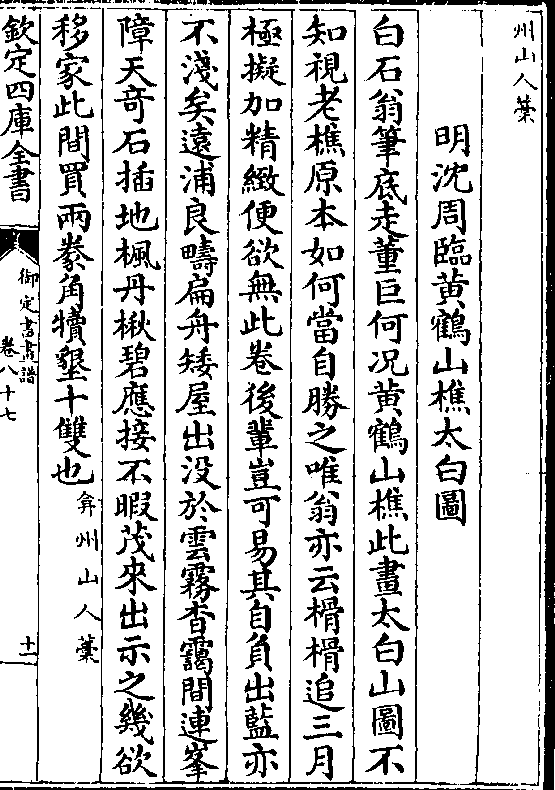 州山人藁
明沈周臨黄鶴山樵太白圖
白石翁筆底走董巨何况黄鶴山樵此畫太白山圖不
知視老樵原本如何當自勝之唯翁亦云榾榾追三月
極擬加精緻便欲無此卷後輩豈可易其自負出藍亦
不淺矣遠浦良疇扁舟矮屋出没於雲霧杳靄間連峯
障天奇石插地楓丹楸碧應接不暇茂來出示之幾欲
移家此間買兩豢角犢墾十雙也 弇州山人藁
欽定四庫全書
御定書畫譜
卷八十七
十一